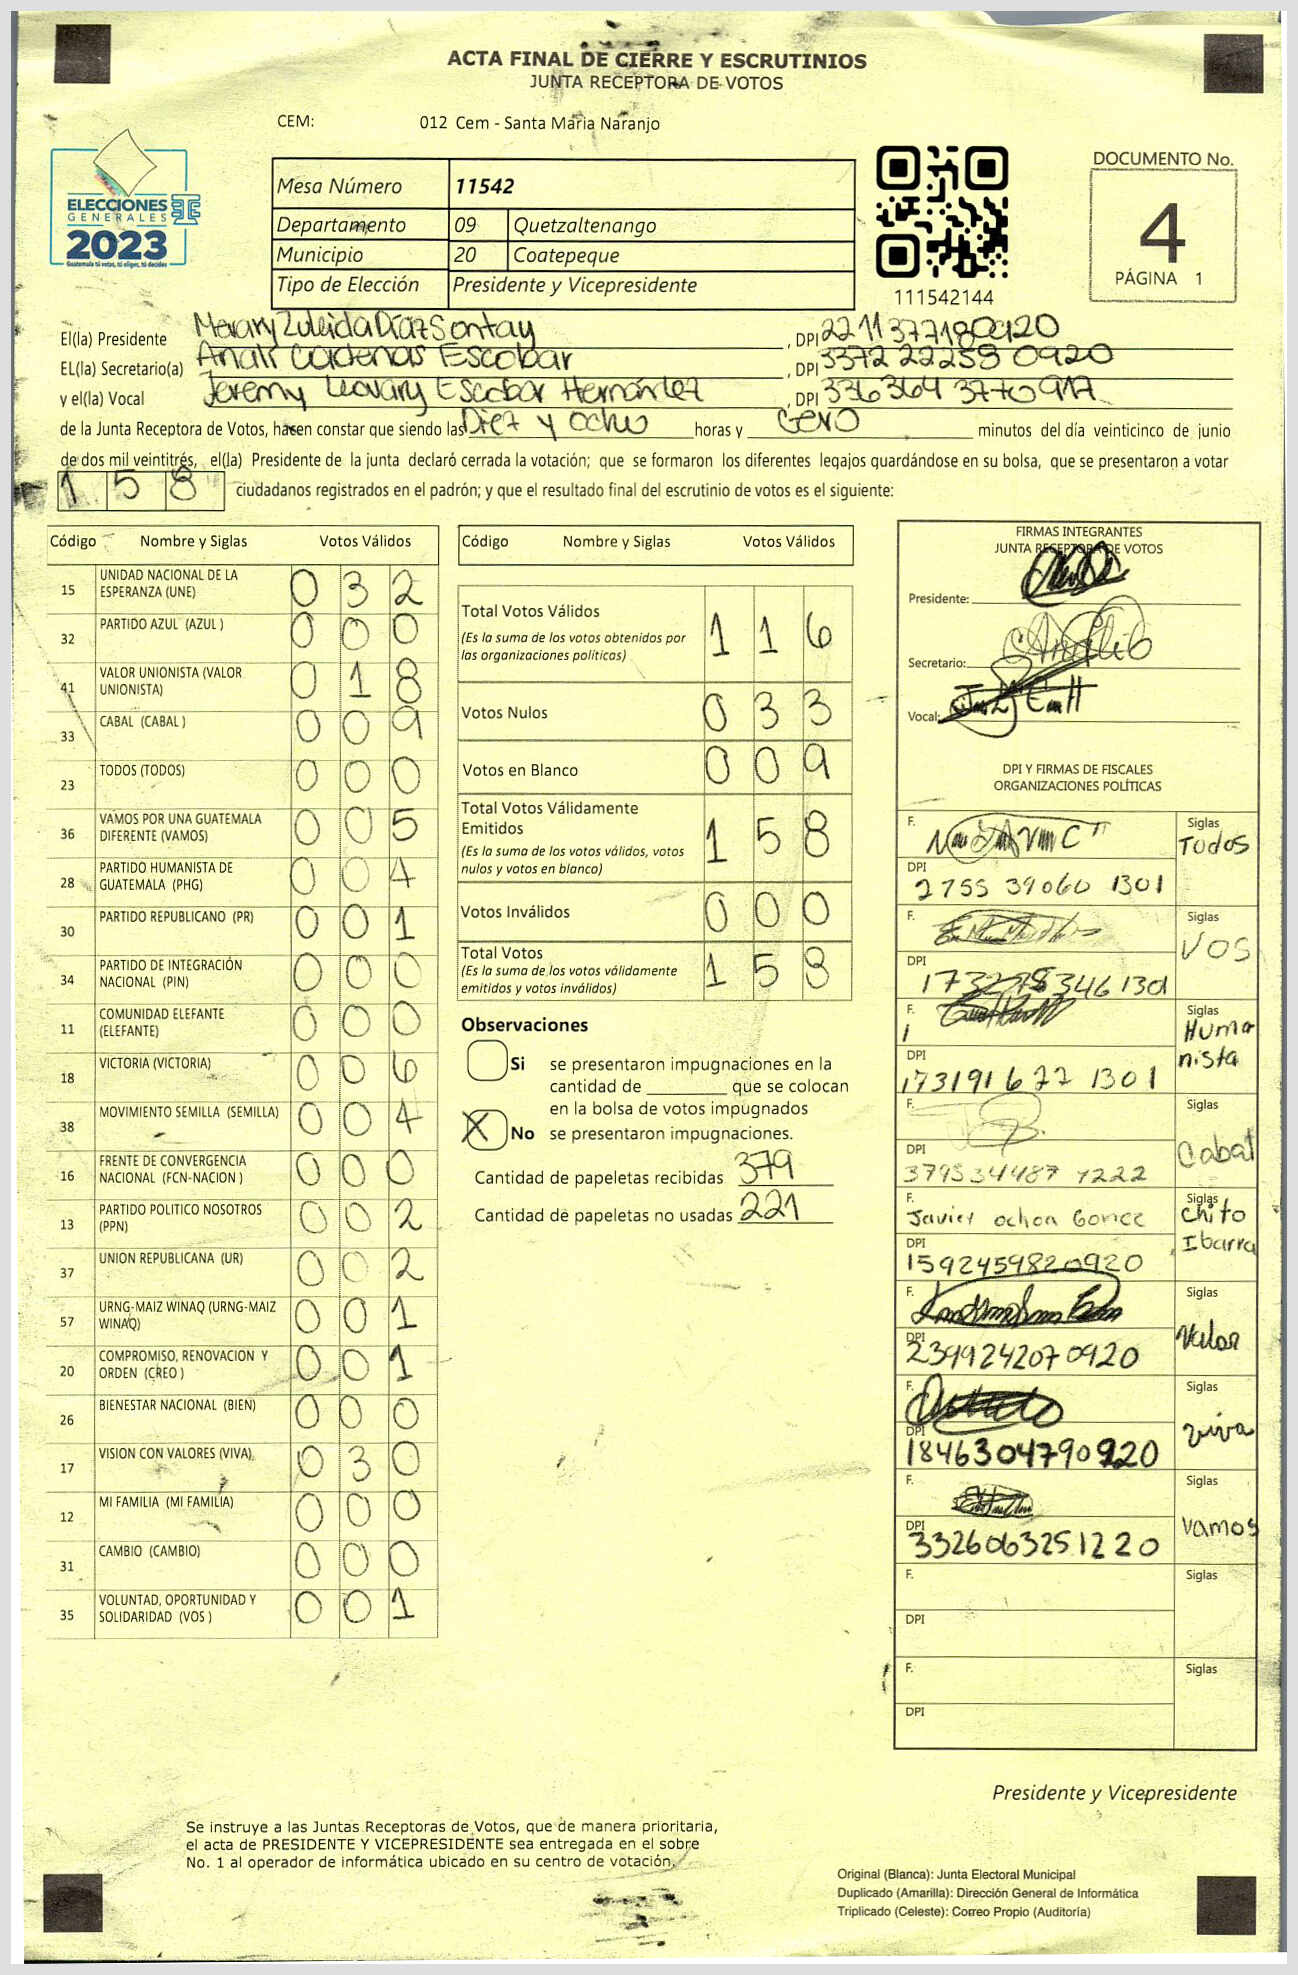 ACTA FINAL DE CIERRE Y ESCRUTINIOS
JUNTA RECEPTORA DE VOTOS
CEM: 012 Cem - Santa Maria Naranjo
ELECCIONES
GENERALES
2023
Guatemala tú votas, tú eliges, tú decides
Mesa Número 11542
Departamento 09 Quetzaltenango
Municipio 20 Coatepeque
Tipo de Elección Presidente y Vicepresidente
111542144
DOCUMENTO No.
4
PÁGINA 1
El(la) Presidente Merary Zuleida Díaz Sontay, DPI 2211377180920
EL(la) Secretario(a) Anali Cardenas Escobar, DPI 3372 22258 0920
y el(la) Vocal Jeremy Leovany Escobar Hernández, DPI 336364 3770917
de la Junta Receptora de Votos, hacen constar que siendo las Diez y ocho horas y Cero minutos del día veinticinco de junio
de dos mil veintitrés, el(la) Presidente de la junta declaró cerrada la votación; que se formaron los diferentes legajos guardándose en su bolsa, que se presentaron a votar
1 5 8 ciudadanos registrados en el padrón; y que el resultado final del escrutinio de votos es el siguiente:
Código Nombre y Siglas Votos Válidos
15 UNIDAD NACIONAL DE LA ESPERANZA (UNE) 0 3 2
32 PARTIDO AZUL (AZUL ) 0 0 0
41 VALOR UNIONISTA (VALOR UNIONISTA) 0 1 8
33 CABAL (CABAL ) 0 0 9
23 TODOS (TODOS) 0 0 0
36 VAMOS POR UNA GUATEMALA DIFERENTE (VAMOS) 0 0 5
28 PARTIDO HUMANISTA DE GUATEMALA (PHG) 0 0 4
30 PARTIDO REPUBLICANO (PR) 0 0 1
34 PARTIDO DE INTEGRACIÓN NACIONAL (PIN) 0 0 0
11 COMUNIDAD ELEFANTE (ELEFANTE) 0 0 0
18 VICTORIA (VICTORIA) 0 0 6
38 MOVIMIENTO SEMILLA (SEMILLA) 0 0 4
16 FRENTE DE CONVERGENCIA NACIONAL (FCN-NACION ) 0 0 0
13 PARTIDO POLITICO NOSOTROS (PPN) 0 0 2
37 UNION REPUBLICANA (UR) 0 0 2
57 URNG-MAIZ WINAQ (URNG-MAIZ WINAQ) 0 0 1
20 COMPROMISO, RENOVACION Y ORDEN (CREO ) 0 0 1
26 BIENESTAR NACIONAL (BIEN) 0 0 0
17 VISION CON VALORES (VIVA) 0 3 0
12 MI FAMILIA (MI FAMILIA) 0 0 0
31 CAMBIO (CAMBIO) 0 0 0
35 VOLUNTAD, OPORTUNIDAD Y SOLIDARIDAD (VOS ) 0 0 1
Código Nombre y Siglas Votos Válidos
Total Votos Válidos 1 1 6
(Es la suma de los votos obtenidos por
las organizaciones políticas)
Votos Nulos 0 3 3
Votos en Blanco 0 0 9
Total Votos Válidamente
Emitidos 1 5 8
(Es la suma de los votos válidos, votos
nulos y votos en blanco)
Votos Inválidos 0 0 0
Total Votos 1 5 8
(Es la suma de los votos válidamente
emitidos y votos inválidos)
Observaciones
Si se presentaron impugnaciones en la
cantidad de ________ que se colocan
en la bolsa de votos impugnados
X No se presentaron impugnaciones.
Cantidad de papeletas recibidas 379
Cantidad de papeletas no usadas 221
FIRMAS INTEGRANTES
JUNTA RECEPTORA DE VOTOS
Presidente:
Secretario:
Vocal:
DPI Y FIRMAS DE FISCALES
ORGANIZACIONES POLÍTICAS
F. Siglas Todos
DPI 2755 39060 1301
F. Siglas VOS
DPI
F. Siglas Humanista
DPI 173191677 1301
F. Siglas Cabal
DPI 379534487 1222
F. Javier ochoa Gomez Siglas Chito Ibarra
DPI 1592459820920
F. Siglas Valor
DPI 2399242070920
F. Siglas viva
DPI 1846304790920
F. Siglas vamos
DPI 3326063251220
F. Siglas
DPI
F. Siglas
DPI
Presidente y Vicepresidente
Se instruye a las Juntas Receptoras de Votos, que de manera prioritaria,
el acta de PRESIDENTE Y VICEPRESIDENTE sea entregada en el sobre
No. 1 al operador de informática ubicado en su centro de votación.
Original (Blanca): Junta Electoral Municipal
Duplicado (Amarilla): Dirección General de Informática
Triplicado (Celeste): Correo Propio (Auditoría)